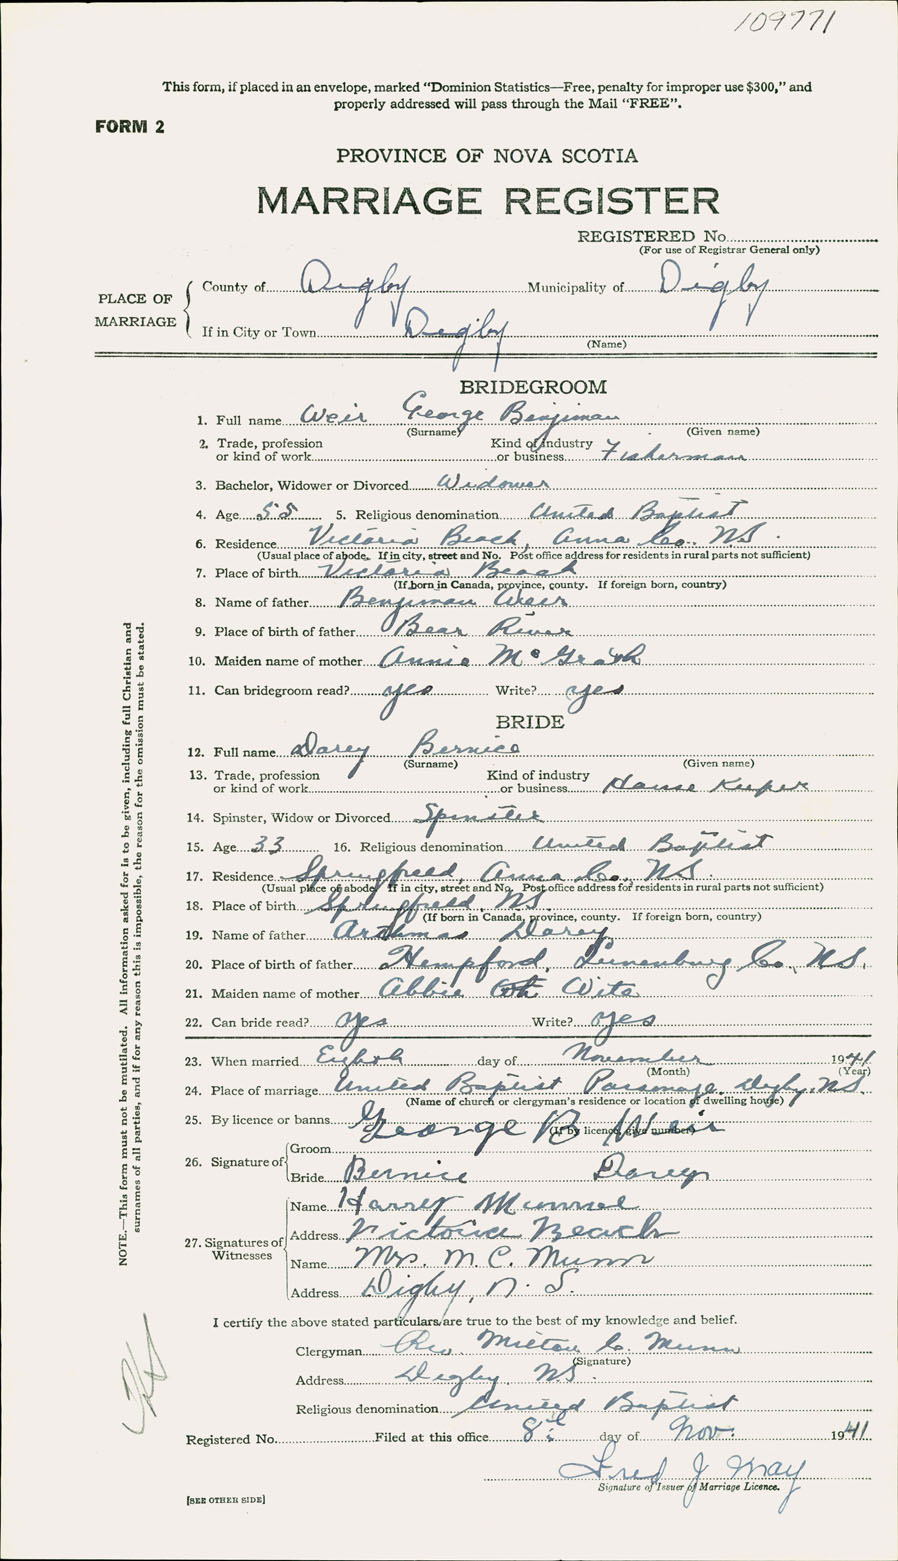 109771
This form, if placed in an envelope, marked "Dominion Statistics—Free, penalty for improper use $300," and
properly addressed will pass through the Mail "FREE".
FORM 2
PROVINCE OF NOVA SCOTIA
MARRIAGE REGISTER
REGISTERED No.
(For use of Registrar General only)
PLACE OF MARRIAGE
County of Digby Municipality of Digby
If in City or Town Digby
(Name)
BRIDEGROOM
1. Full name Weir George Benjiman
(Surname) (Given name)
2. Trade, profession or kind of work Kind of industry or business Fisherman
3. Bachelor, Widower or Divorced Widower
4. Age 55 5. Religious denomination United Baptist
6. Residence Victoria Beach, Anna Co. NS.
(Usual place of abode. If in city, street and No. Post office address for residents in rural parts not sufficient)
7. Place of birth Victoria Beach
(If born in Canada, province, county. If foreign born, country)
8. Name of father Benjiman Weir
9. Place of birth of father Bear River
10. Maiden name of mother Annie McGrath
11. Can bridegroom read? yes Write? yes
BRIDE
12. Full name Darey Bernice
(Surname) (Given name)
13. Trade, profession or kind of work Kind of industry or business House Keeper
14. Spinster, Widow or Divorced Spinster
15. Age 33 16. Religious denomination United Baptist
17. Residence Springfield, Anna Co., NS.
(Usual place of abode. If in city, street and No. Post office address for residents in rural parts not sufficient)
18. Place of birth Springfield, NS.
(If born in Canada, province, county. If foreign born, country)
19. Name of father Darey
20. Place of birth of father Hempford, Lunenburg Co., NS.
21. Maiden name of mother Abbie Wite
22. Can bride read? yes Write? yes
23. When married Eighth day of November 1941
(Month) (Year)
24. Place of marriage United Baptist Parsonage, Digby, NS.
(Name of church or clergyman's residence or location of dwelling house)
25. By licence or banns
(If by licence, give number)
26. Signature of
Groom George B Weir
Bride Bernice Darey
27. Signatures of Witnesses
Name Harry
Address Victoria Beach
Name Mrs. M. C. Munn
Address Digby, N. S.
I certify the above stated particulars are true to the best of my knowledge and belief.
Clergyman Rev. Milton C. Munn
(Signature)
Address Digby, NS.
Religious denomination United Baptist
Registered No. Filed at this office 8th day of Nov. 1941
Fred J May
Signature of Issuer of Marriage Licence.
[SEE OTHER SIDE]
NOTE.—This form must not be mutilated. All information asked for is to be given, including full Christian and
surnames of all parties, and if for any reason this is impossible, the reason for the omission must be stated.